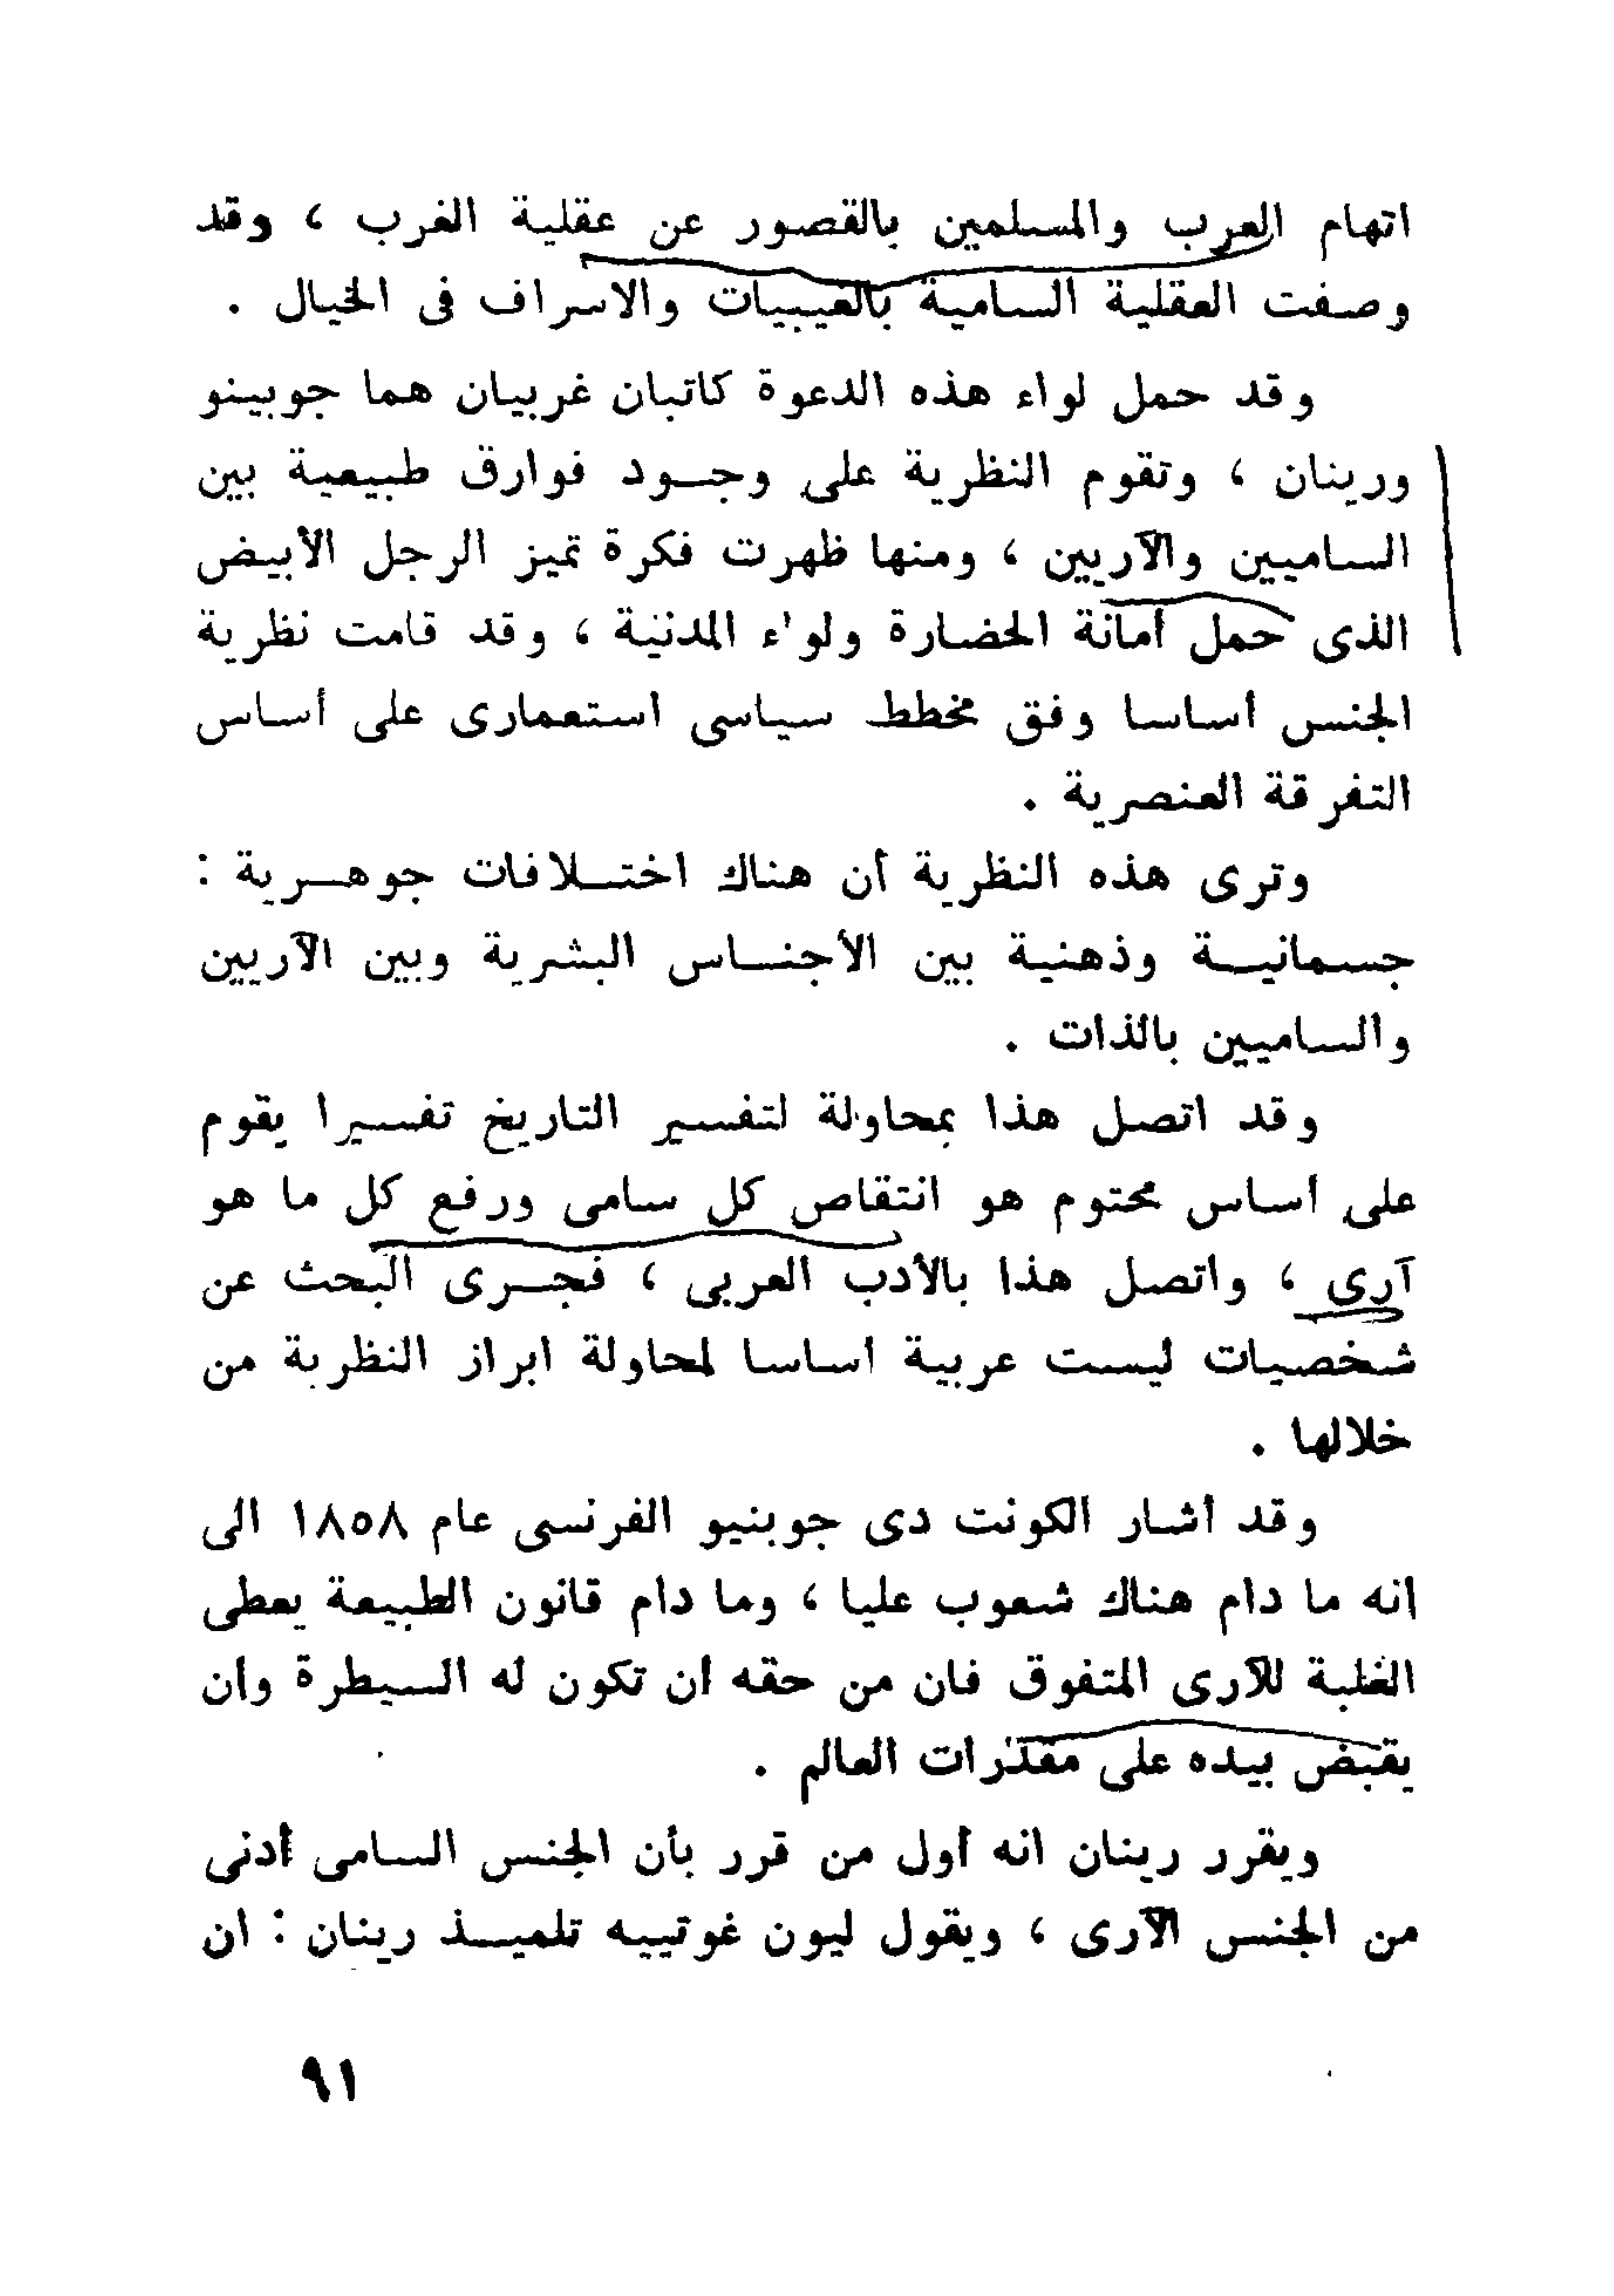 اتهام العرب والمسلمين بالقصور عن عقلية الغرب ، وقد
وصفت العقلية السامية بالغيبيات والاسراف فى الخيال .
وقد حمل لواء هذه الدعوة كاتبان غربيان هما جوبينو
ورينان ، وتقوم النظرية على وجود فوارق طبيعية بين
الساميين والآريين ، ومنها ظهرت فكرة تميز الرجل الأبيض
الذى حمل أمانة الحضارة ولواء المدنية ، وقد قامت نظرية
الجنس أساسا وفق مخطط سياسى استعمارى على أساس
التفرقة العنصرية .
وترى هذه النظرية أن هناك اختلافات جوهرية :
جسمانية وذهنية بين الأجناس البشرية وبين الآريين
والساميين بالذات .
وقد اتصل هذا بمحاولة لتفسير التاريخ تفسيرا يقوم
على أساس محتوم هو انتقاص كل سامى ورفع كل ما هو
آرى ، واتصل هذا بالأدب العربى ، فجرى البحث عن
شخصيات ليست عربية أساسا لمحاولة ابراز النظرية من
خلالها .
وقد أشار الكونت دى جوبنيو الفرنسى عام ١٨٥٨ الى
انه ما دام هناك شعوب عليا ، وما دام قانون الطبيعة يعطى
الغلبة للآرى المتفوق فان من حقه ان تكون له السيطرة وان
يقبض بيده على مقدرات العالم .
ويقرر رينان انه أول من قرر بأن الجنس السامى أدنى
من الجنس الآرى ، ويقول ليون غوتييه تلميذ رينان : ان
٩١